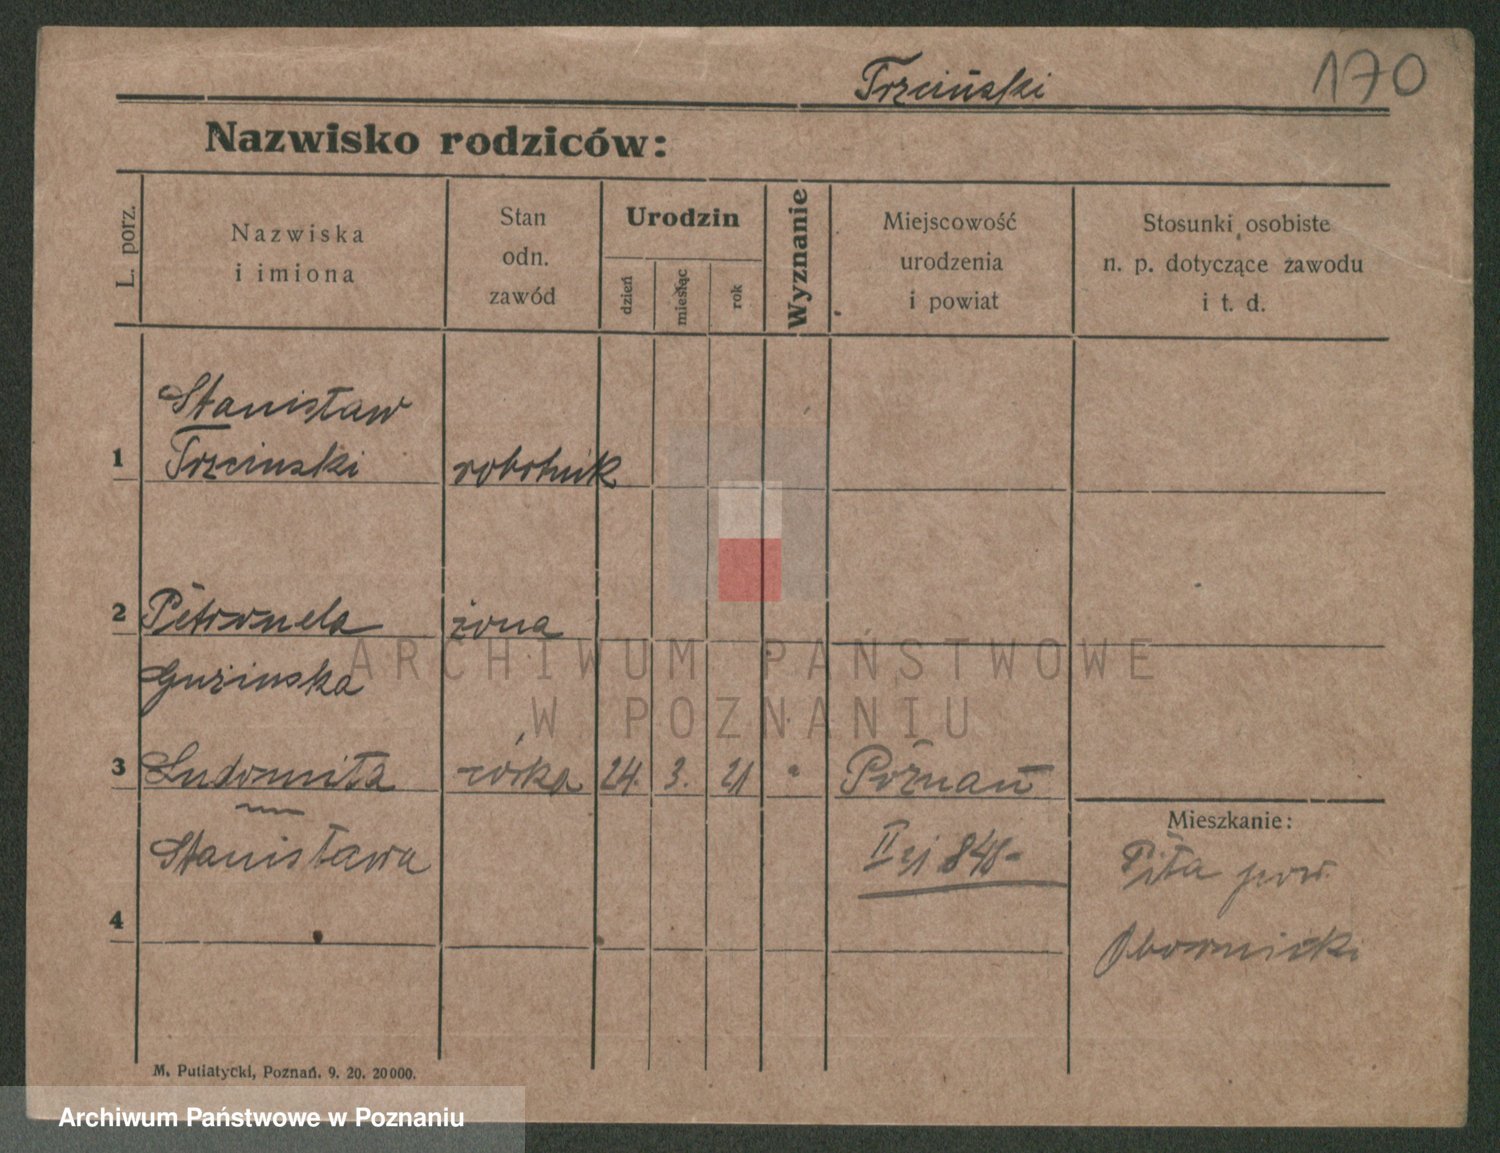 Trzciński 170
Nazwisko rodziców:
L. porz.
Nazwiska
i imiona
Stan
odn.
zawód
Urodzin
dzień
miesiąc
rok
Wyznanie
Miejscowość
urodzenia
i powiat
Stosunki osobiste
n. p. dotyczące zawodu
i t. d.
Stanisław
1 Trzcinski robotnik
2 Petronela żona
Gużinska
3 Ludomiła córka 24. 3. 21 Poznań
Mieszkanie:
Stanisława
Piła pow.
4
Obornicki
M. Putiatycki, Poznań. 9. 20. 20000.
ARCHIWUM PAŃSTWOWE
W POZNANIU
Archiwum Państwowe w Poznaniu